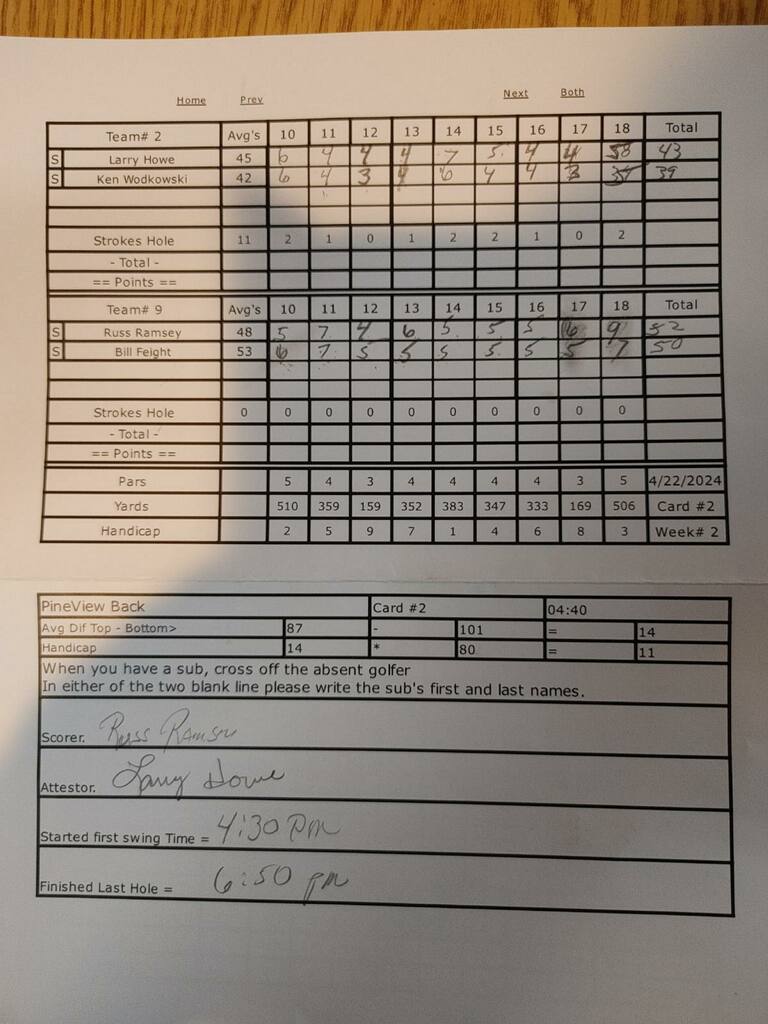 Home Prev Next Both
Team# 2 Avg's 10 11 12 13 14 15 16 17 18 Total
S Larry Howe 45 6 4 4 4 7 5 4 4 43
S Ken Wodkowski 42 6 4 3 4 6 4 4 3 39
Strokes Hole 11 2 1 0 1 2 2 1 0 2
- Total -
== Points ==
Team# 9 Avg's 10 11 12 13 14 15 16 17 18 Total
S Russ Ramsey 48 5 7 4 6 5 5 5 6 9 52
S Bill Feight 53 6 7 5 5 5 5 5 5 7 50
Strokes Hole 0 0 0 0 0 0 0 0 0 0
- Total -
== Points ==
Pars 5 4 3 4 4 4 4 3 5 4/22/2024
Yards 510 359 159 352 383 347 333 169 506 Card #2
Handicap 2 5 9 7 1 4 6 8 3 Week# 2
PineView Back Card #2 04:40
Avg Dif Top - Bottom> 87 - 101 = 14
Handicap 14 * 80 = 11
When you have a sub, cross off the absent golfer
In either of the two blank line please write the sub's first and last names.
Scorer. Russ Ramsey
Attestor. Larry Howe
Started first swing Time = 4:30 pm
Finished Last Hole = 6:50 pm